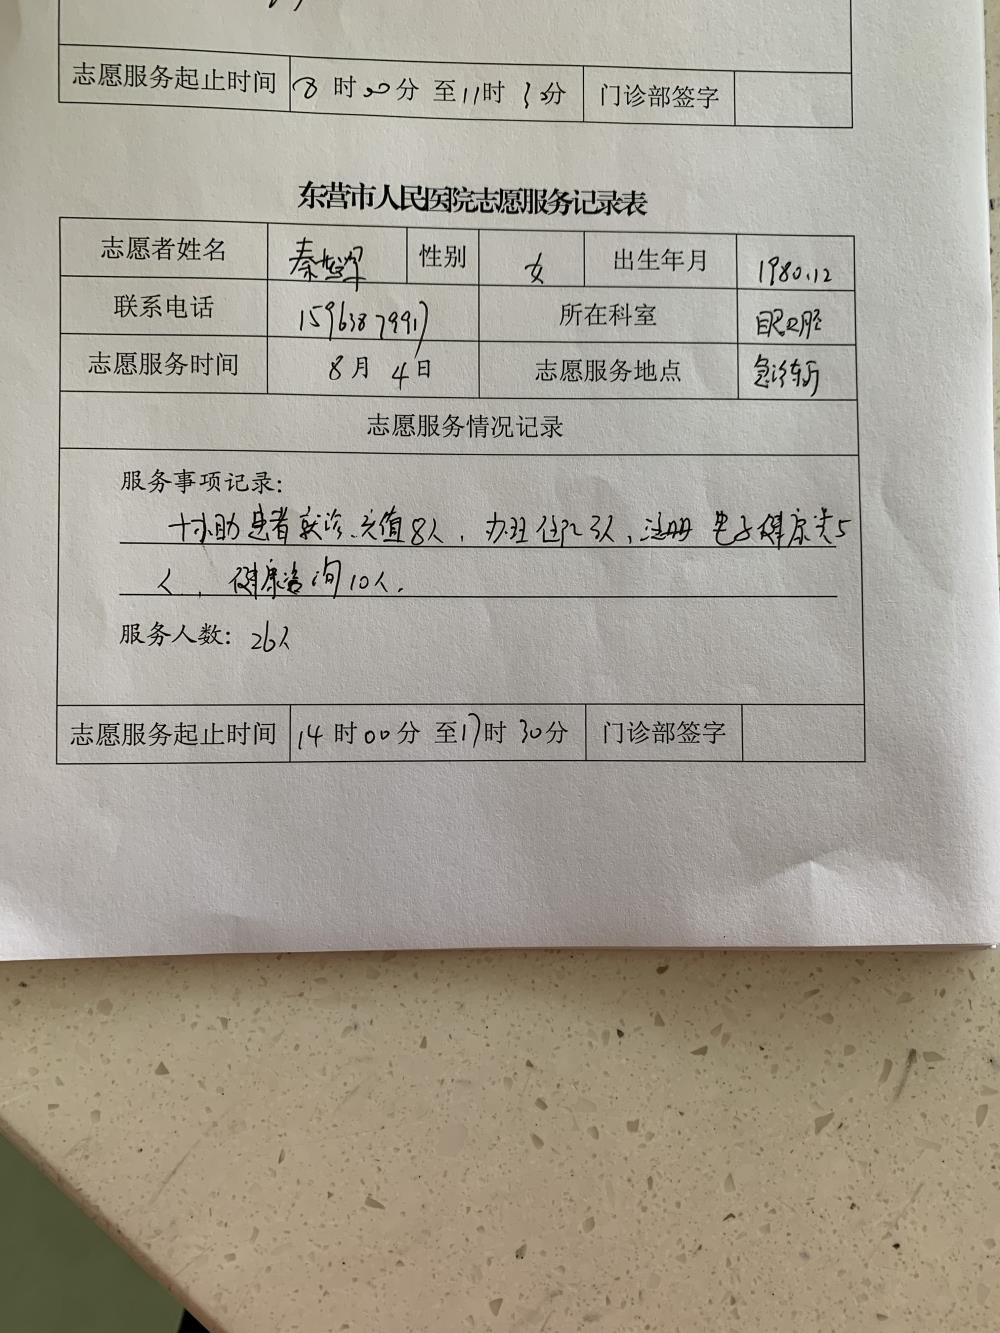 志愿服务起止时间 8时00分 至11时30分 门诊部签字
东营市人民医院志愿服务记录表
志愿者姓名 秦 性别 女 出生年月 1980.12
联系电话 15963879917 所在科室 眼
志愿服务时间 8月4日 志愿服务地点 急诊
志愿服务情况记录
服务事项记录：
协助患者就诊、充值8人，办理住院3人，注册电子健康卡5
人，健康咨询10人.
服务人数：26人
志愿服务起止时间 14时00分 至17时30分 门诊部签字